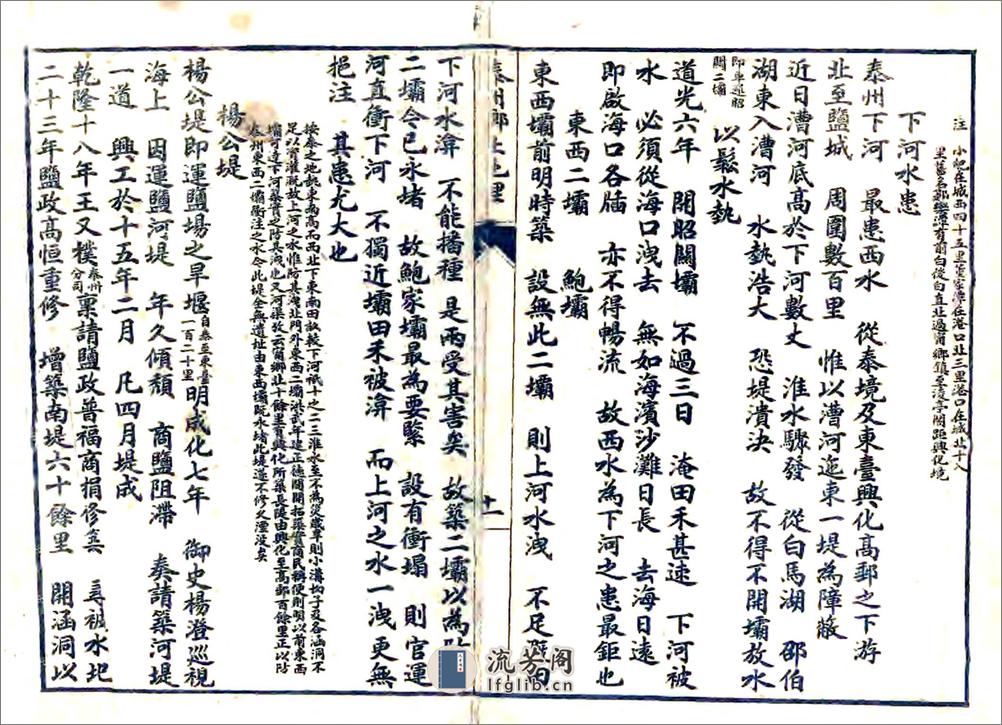 注 小紀在城西四十五里董家潭在港口北三里港口在城北十八
里舊名郭
直北過甯鄉鎮至凌亭閣距興化境
下河水患
泰州下河 最患西水 從泰境及東臺興化高郵之下游
北至鹽城 周圍數百里 惟以漕河迤東一堤為障蔽
近日漕河底高於下河數丈 淮水驟發 從白馬湖 邵伯
湖東入漕河 水埶浩大 恐堤潰決 故不得不開壩放水
即車邏昭
關二壩 以鬆水埶
道光六年 開昭關壩 不過三日 淹田禾甚速 下河被
水 必須從海口洩去 無如海濱沙灘日長 去海日遠
即啟海口各牐 亦不得暢流 故西水為下河之患最鉅也
東西二壩 鮑壩
東西壩前明時築 設無此二壩 則上河水洩 不足
泰州鄉土地理
十一
下河水渰 不能播種 是兩受其害矣 故築二壩以為
二壩今已永堵 故鮑家壩最為要緊 設有衝塌 則官運
河直衝下河 不獨近壩田禾被渰 而上河之水一洩更無
挹注 其患尤大也
按泰之地埶東南高而西北下東南田畝較下河祇十之二三淮水至不為災歲旱則小溝枸子及各涵洞不
足以資灌溉故上河之水惟防其洩北門外東西二壩洪武年建正德間開拓渠貫商民稱便則明以前東西
壩可達下河築實之防其洩也又河渠故云甯鄉北十餘里有興化所築長隄由興化至高郵百餘里正以防
泰州東西二壩衝注之水今此堤全無遺址由東西壩既永堵此堤遂不修久湮沒矣
楊公堤
楊公堤即運鹽場之旱堰 自泰至東臺
一百二十里 明成化七年 御史楊澄巡視
海上 因運鹽河堤 年久傾頹 商鹽阻滯 奏請築河堤
一道 興工於十五年二月 凡四月堤成
乾隆十八年王又樸 泰州
分司 稟請鹽政普福商捐修築 尋被水圮
二十三年鹽政高恒重修 增築南堤六十餘里 開涵洞以
流芳阁
lfglib.cn